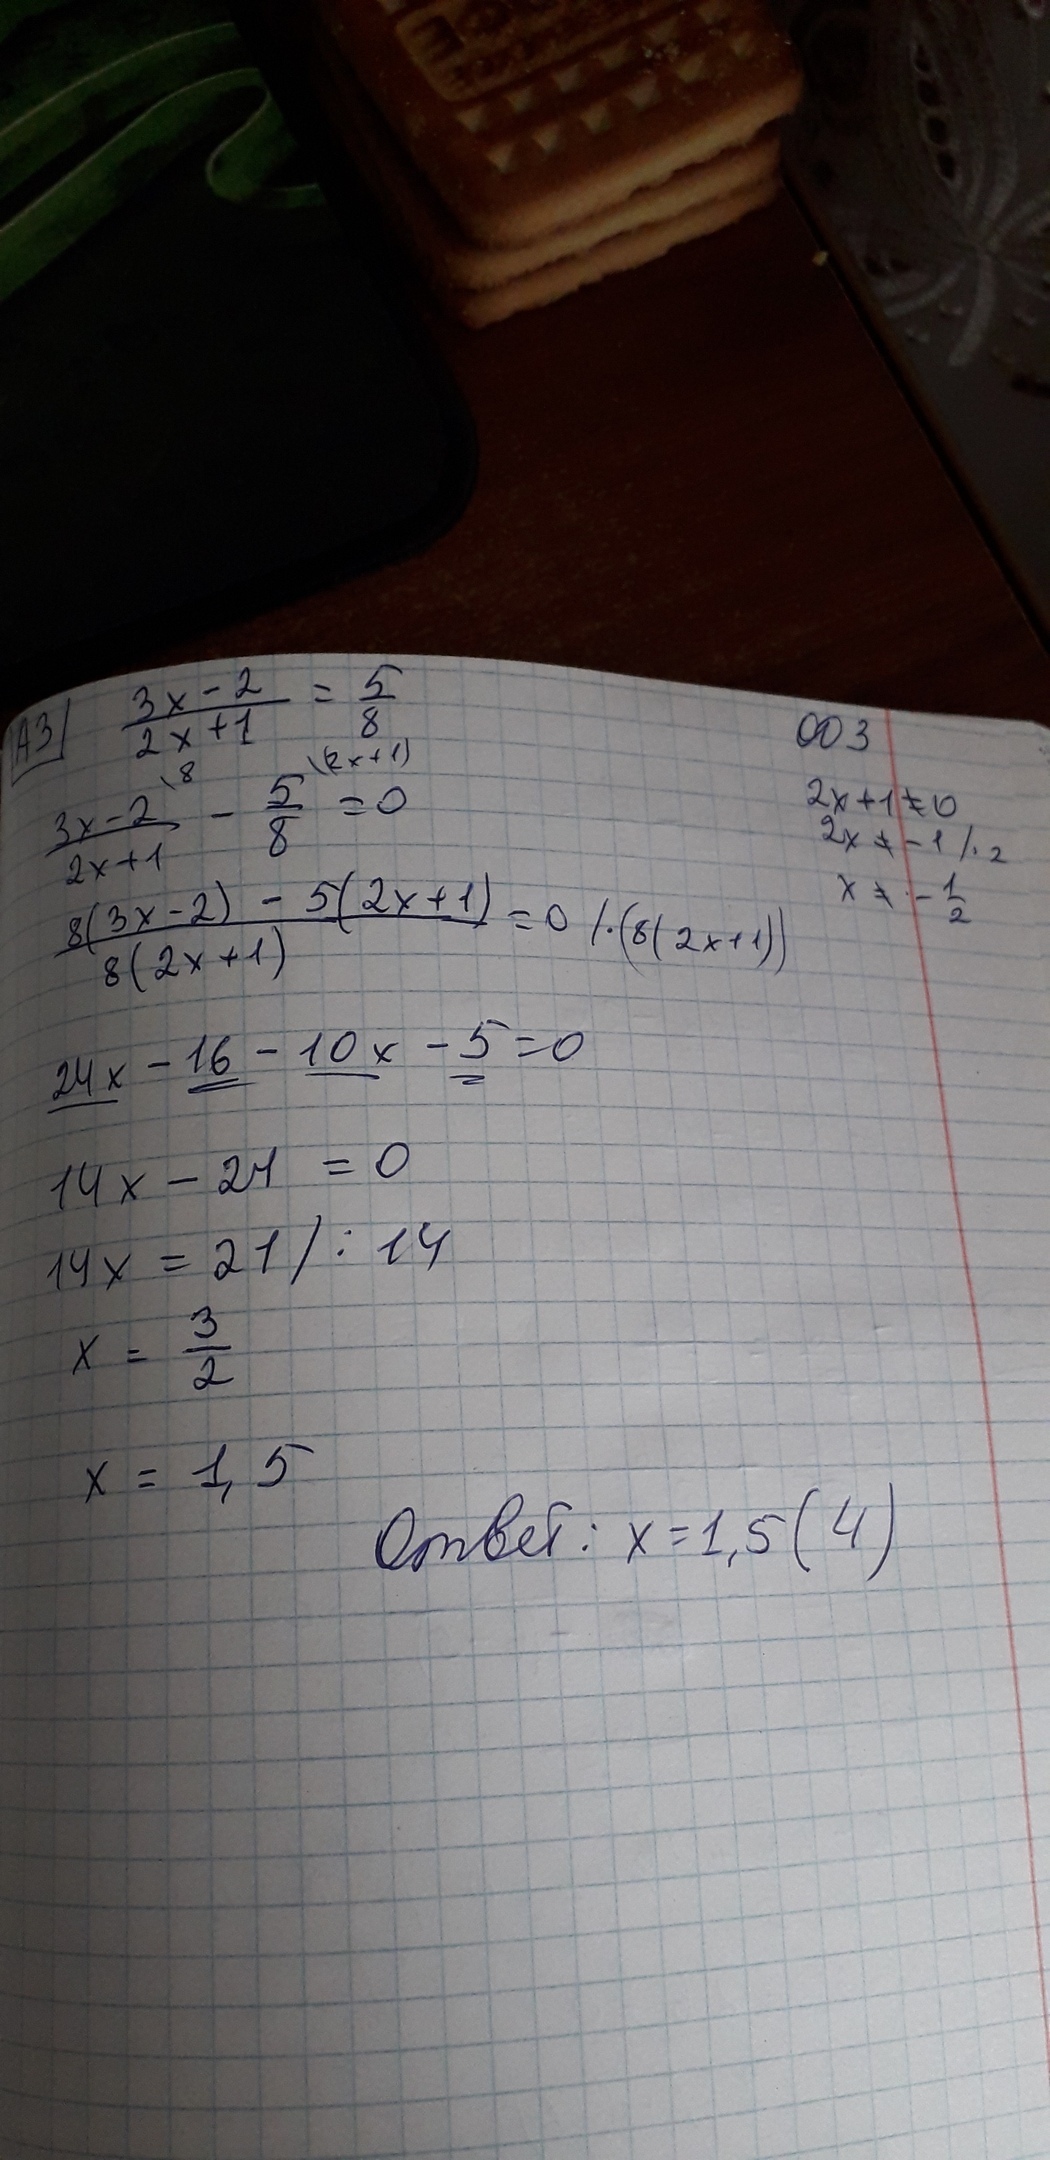 A3
3x-2/2x+1 = 5/8
3x-2/2x+1 \8 - 5/8 \(2x+1) = 0
8(3x-2) - 5(2x+1)/8(2x+1) = 0 /·(8(2x+1))
24x - 16 - 10x - 5 = 0
14x - 21 = 0
14x = 21 /: 14
x = 3/2
x = 1,5
Ответ: x=1,5 (4)
ОДЗ
2x+1≠0
2x ≠ -1 /: 2
x ≠ -1/2